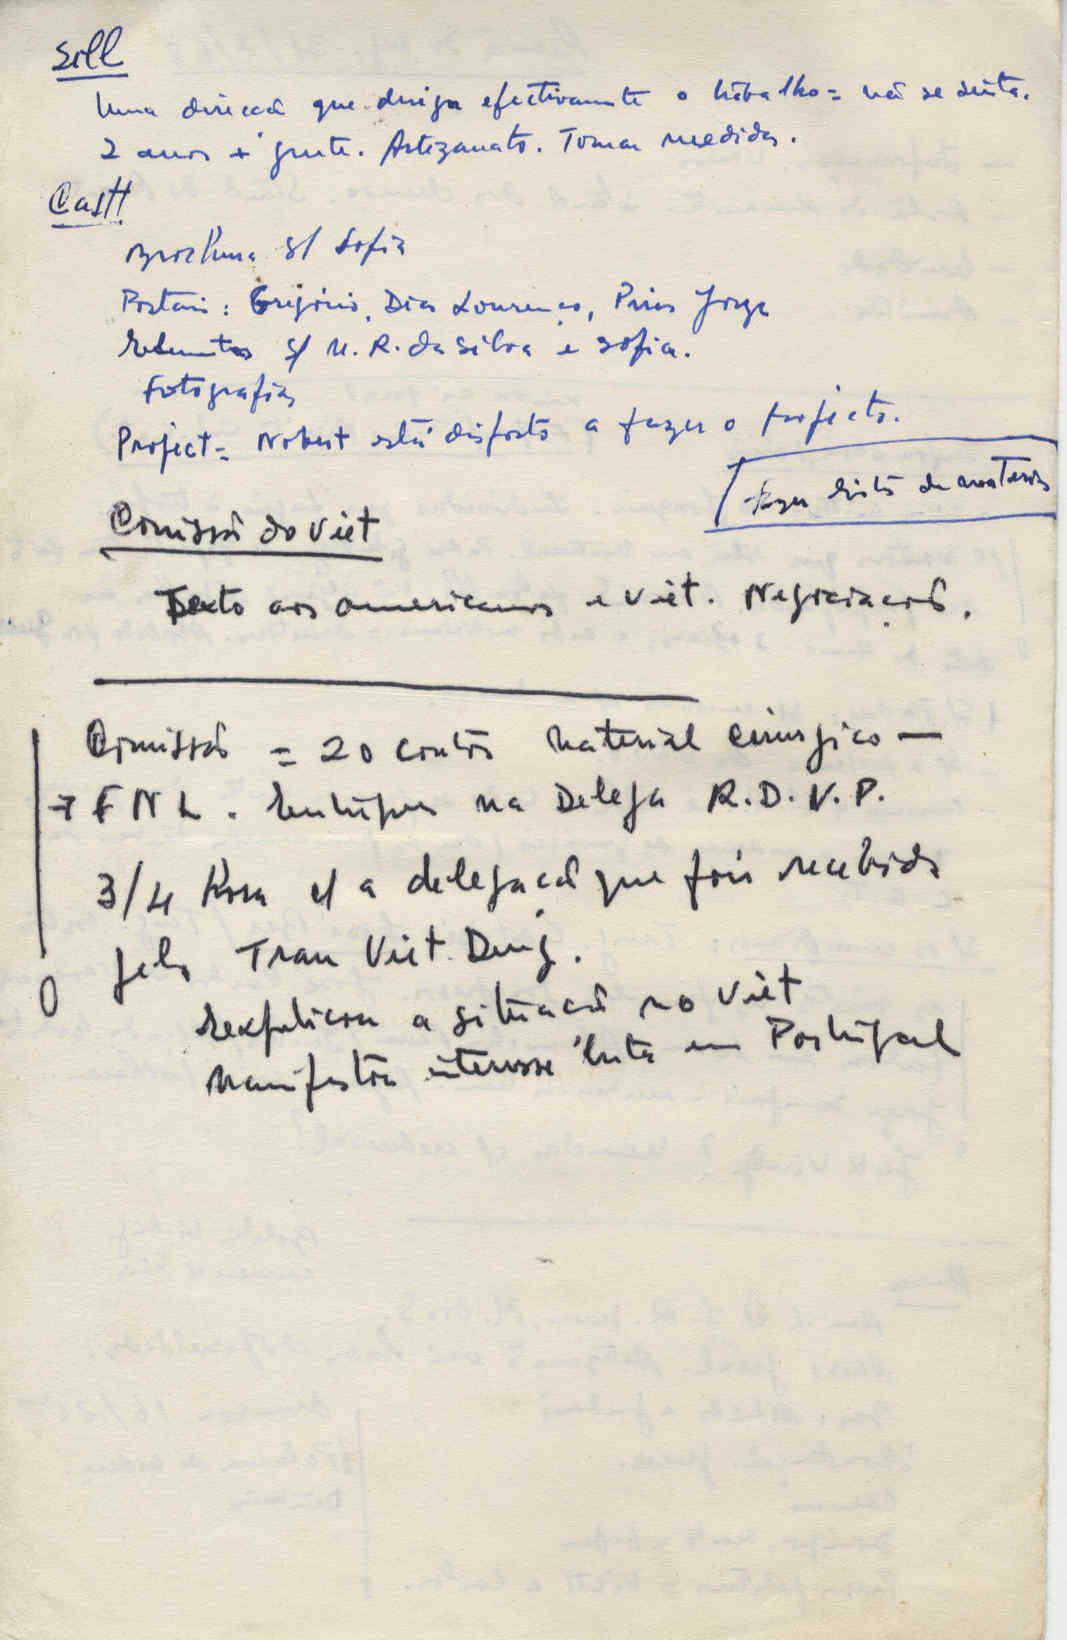 Sill
Uma direcçã que dirija efectivamente o trabalho = nã se sinta.
2 anos + gente. Artezanato. Tomar medidas.
Cast
Brochura s/ Sofia
Postais: Grigório, Dias Lourenço, Pires Jorge
s/ M. R. da Silva e Sofia.
Fotografias
Project = Nobert está disposto a fazer o projecto.
Fazer lista de materiais
Comissã do Viet
Texto aos americanos e Viet. Negociaçõs.
Comissã = 20 contos material cirúrgico —
→ F N L. Entregar na Delega R.D.V.P.
3/4 hora c/ a delegaçã que foi recebida
pelo Tran Viet Dung.
explicou a situaçã no Viet
Manifestou interesse luta em Portugal